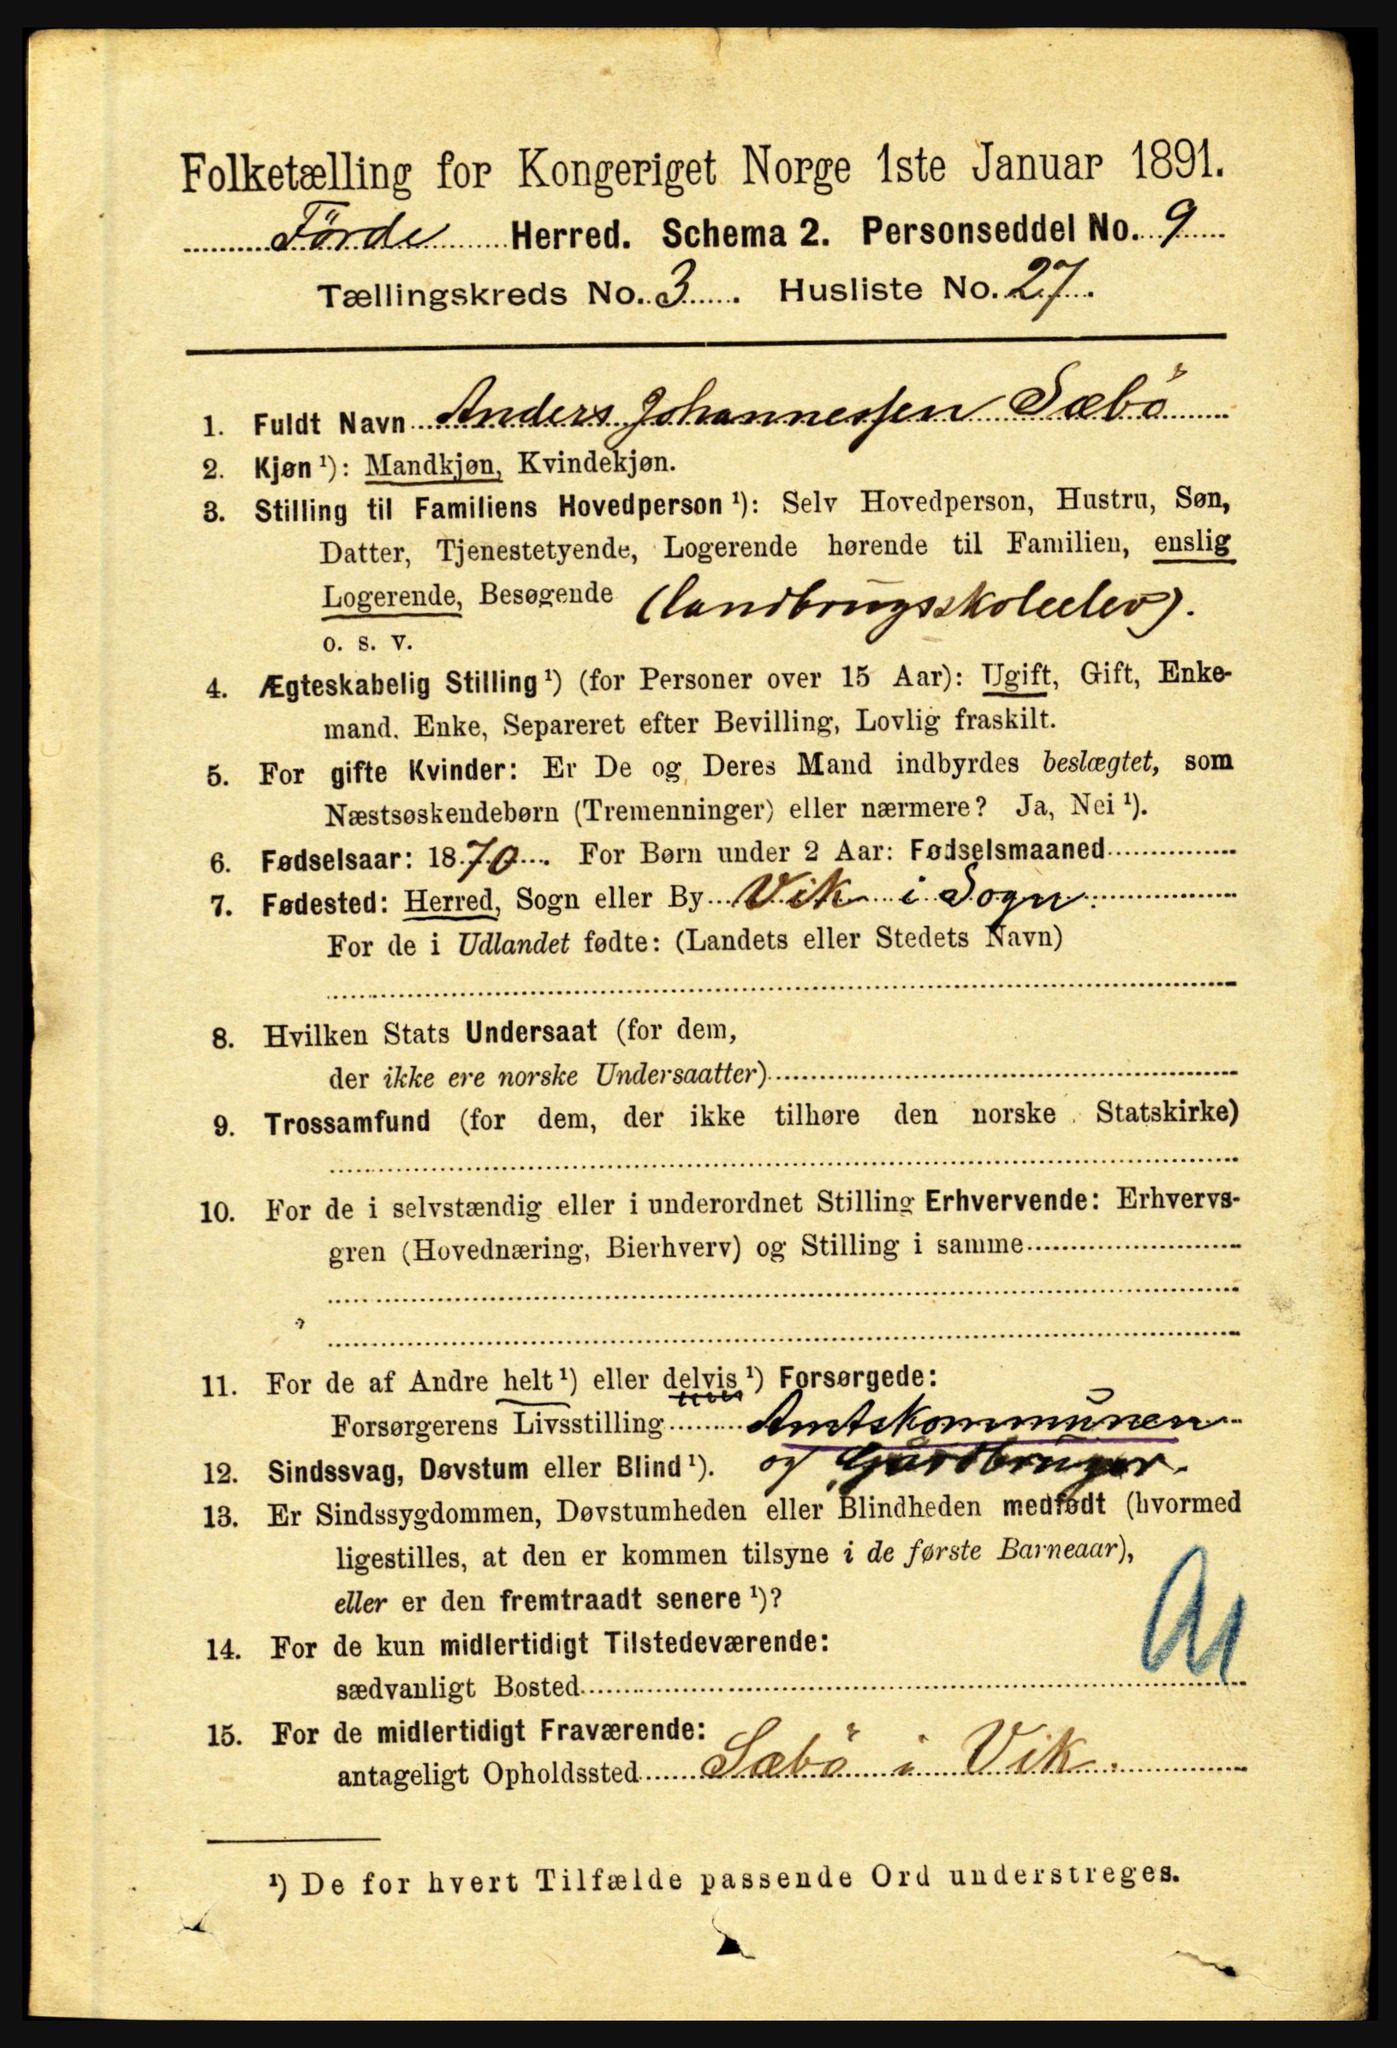 Folketælling for Kongeriget Norge 1ste Januar 1891.
Förde Herred. Schema 2. Personseddel No. 9
Tællingskreds No. 3. Husliste No. 27.
1. Fuldt Navn Anders Johannessen Sæbö
2. Kjøn ¹): Mandkjøn, Kvindekjøn.
3. Stilling til Familiens Hovedperson ¹): Selv Hovedperson, Hustru, Søn,
Datter, Tjenestetyende, Logerende hørende til Familien, enslig
Logerende, Besøgende (landbrugsskoleelev).
o. s. v.
4. Ægteskabelig Stilling ¹) (for Personer over 15 Aar): Ugift, Gift, Enke-
mand. Enke, Separeret efter Bevilling, Lovlig fraskilt.
5. For gifte Kvinder: Er De og Deres Mand indbyrdes beslægtet, som
Næstsøskendebørn (Tremenninger) eller nærmere? Ja, Nei ¹).
6. Fødselsaar: 1870. For Børn under 2 Aar: Fødselsmaaned
7. Fødested: Herred, Sogn eller By Vik i Sogn.
For de i Udlandet fødte: (Landets eller Stedets Navn)
8. Hvilken Stats Undersaat (for dem,
der ikke ere norske Undersaatter)
9. Trossamfund (for dem, der ikke tilhøre den norske Statskirke)
10. For de i selvstændig eller i underordnet Stilling Erhvervende: Erhvervs-
gren (Hovednæring, Bierhverv) og Stilling i samme
11. For de af Andre helt ¹) eller delvis ¹) Forsørgede:
Forsørgerens Livsstilling Amtskommunen
12. Sindssvag, Døvstum eller Blind ¹). og Gårdbruger.
13. Er Sindssygdommen, Døvstumheden eller Blindheden medfødt (hvormed
ligestilles, at den er kommen tilsyne i de første Barneaar),
eller er den fremtraadt senere ¹)?
14. For de kun midlertidigt Tilstedeværende:
sædvanligt Bosted
15. For de midlertidigt Fraværende:
antageligt Opholdssted Sæbö i Vik.
¹) De for hvert Tilfælde passende Ord understreges.